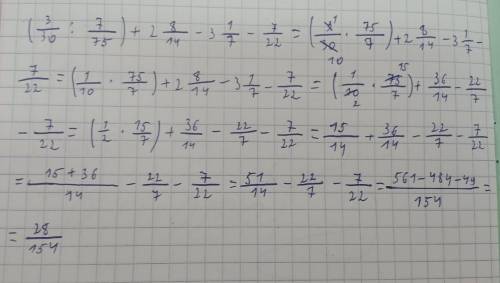 (3/30 : 7/75) + 2 8/14 - 3 1/7 - 7/22 = (3̶ 1/3̶0̶ 10 · 75/7) + 2 8/14 - 3 1/7 -
7/22 = (1/10 · 75/7) + 2 8/14 - 3 1/7 - 7/22 = (1/1̶0̶ 2 · 7̶5̶ 15/7) + 36/14 - 22/7
- 7/22 = (1/2 · 15/7) + 36/14 - 22/7 - 7/22 = 15/14 + 36/14 - 22/7 - 7/22
= (15 + 36)/14 - 22/7 - 7/22 = 51/14 - 22/7 - 7/22 = (561 - 484 - 49)/154 =
= 28/154